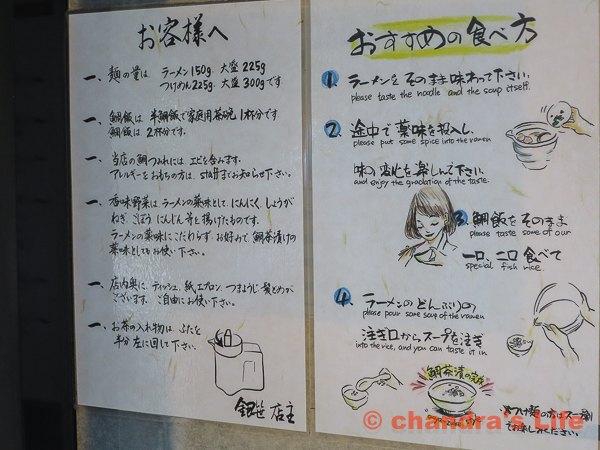 お客様へ
一、麺の量は、ラーメン150g 大盛225g
つけめん225g 大盛300gです
一、鯛飯は 半鯛飯で家庭用茶碗1杯分です
鯛飯は 2杯分です。
一、当店の鯛つみれには エビを含みます。
アレルギーをおもちの方は、staffまでお知らせ下さい。
一、香味野菜はラーメンの薬味として、にんにく しょうが
ねぎ ごぼう にんじん 等を揚げたものです。
ラーメンの薬味にこだわらず お好みで、鯛茶漬けの
薬味としてもお使い下さい。
一、店内奥に、ティッシュ、紙エプロン、つまようじ 髪どめが
ございます。ご自由にお使い下さい。
一、お茶の入れ物は、ふたを
半分 左に回して下さい。
銀笹 店主
おすすめの食べ方
1. ラーメンを そのまま 味わって下さい。
please taste the noodle and the soup itself.
2. 途中で 薬味を投入し、
please put some spice into the ramen
味の変化を楽しんで下さい
and enjoy the gradation of the taste.
3. 鯛飯をそのまま
please taste some of our
一口、二口 食べて
special fish rice.
4. ラーメンのどんぶりの
please pour some soup of the ramen
注ぎ口からスープを注ぎ
into the rice, and you can taste it in
鯛茶漬の完成
© chandra's Life